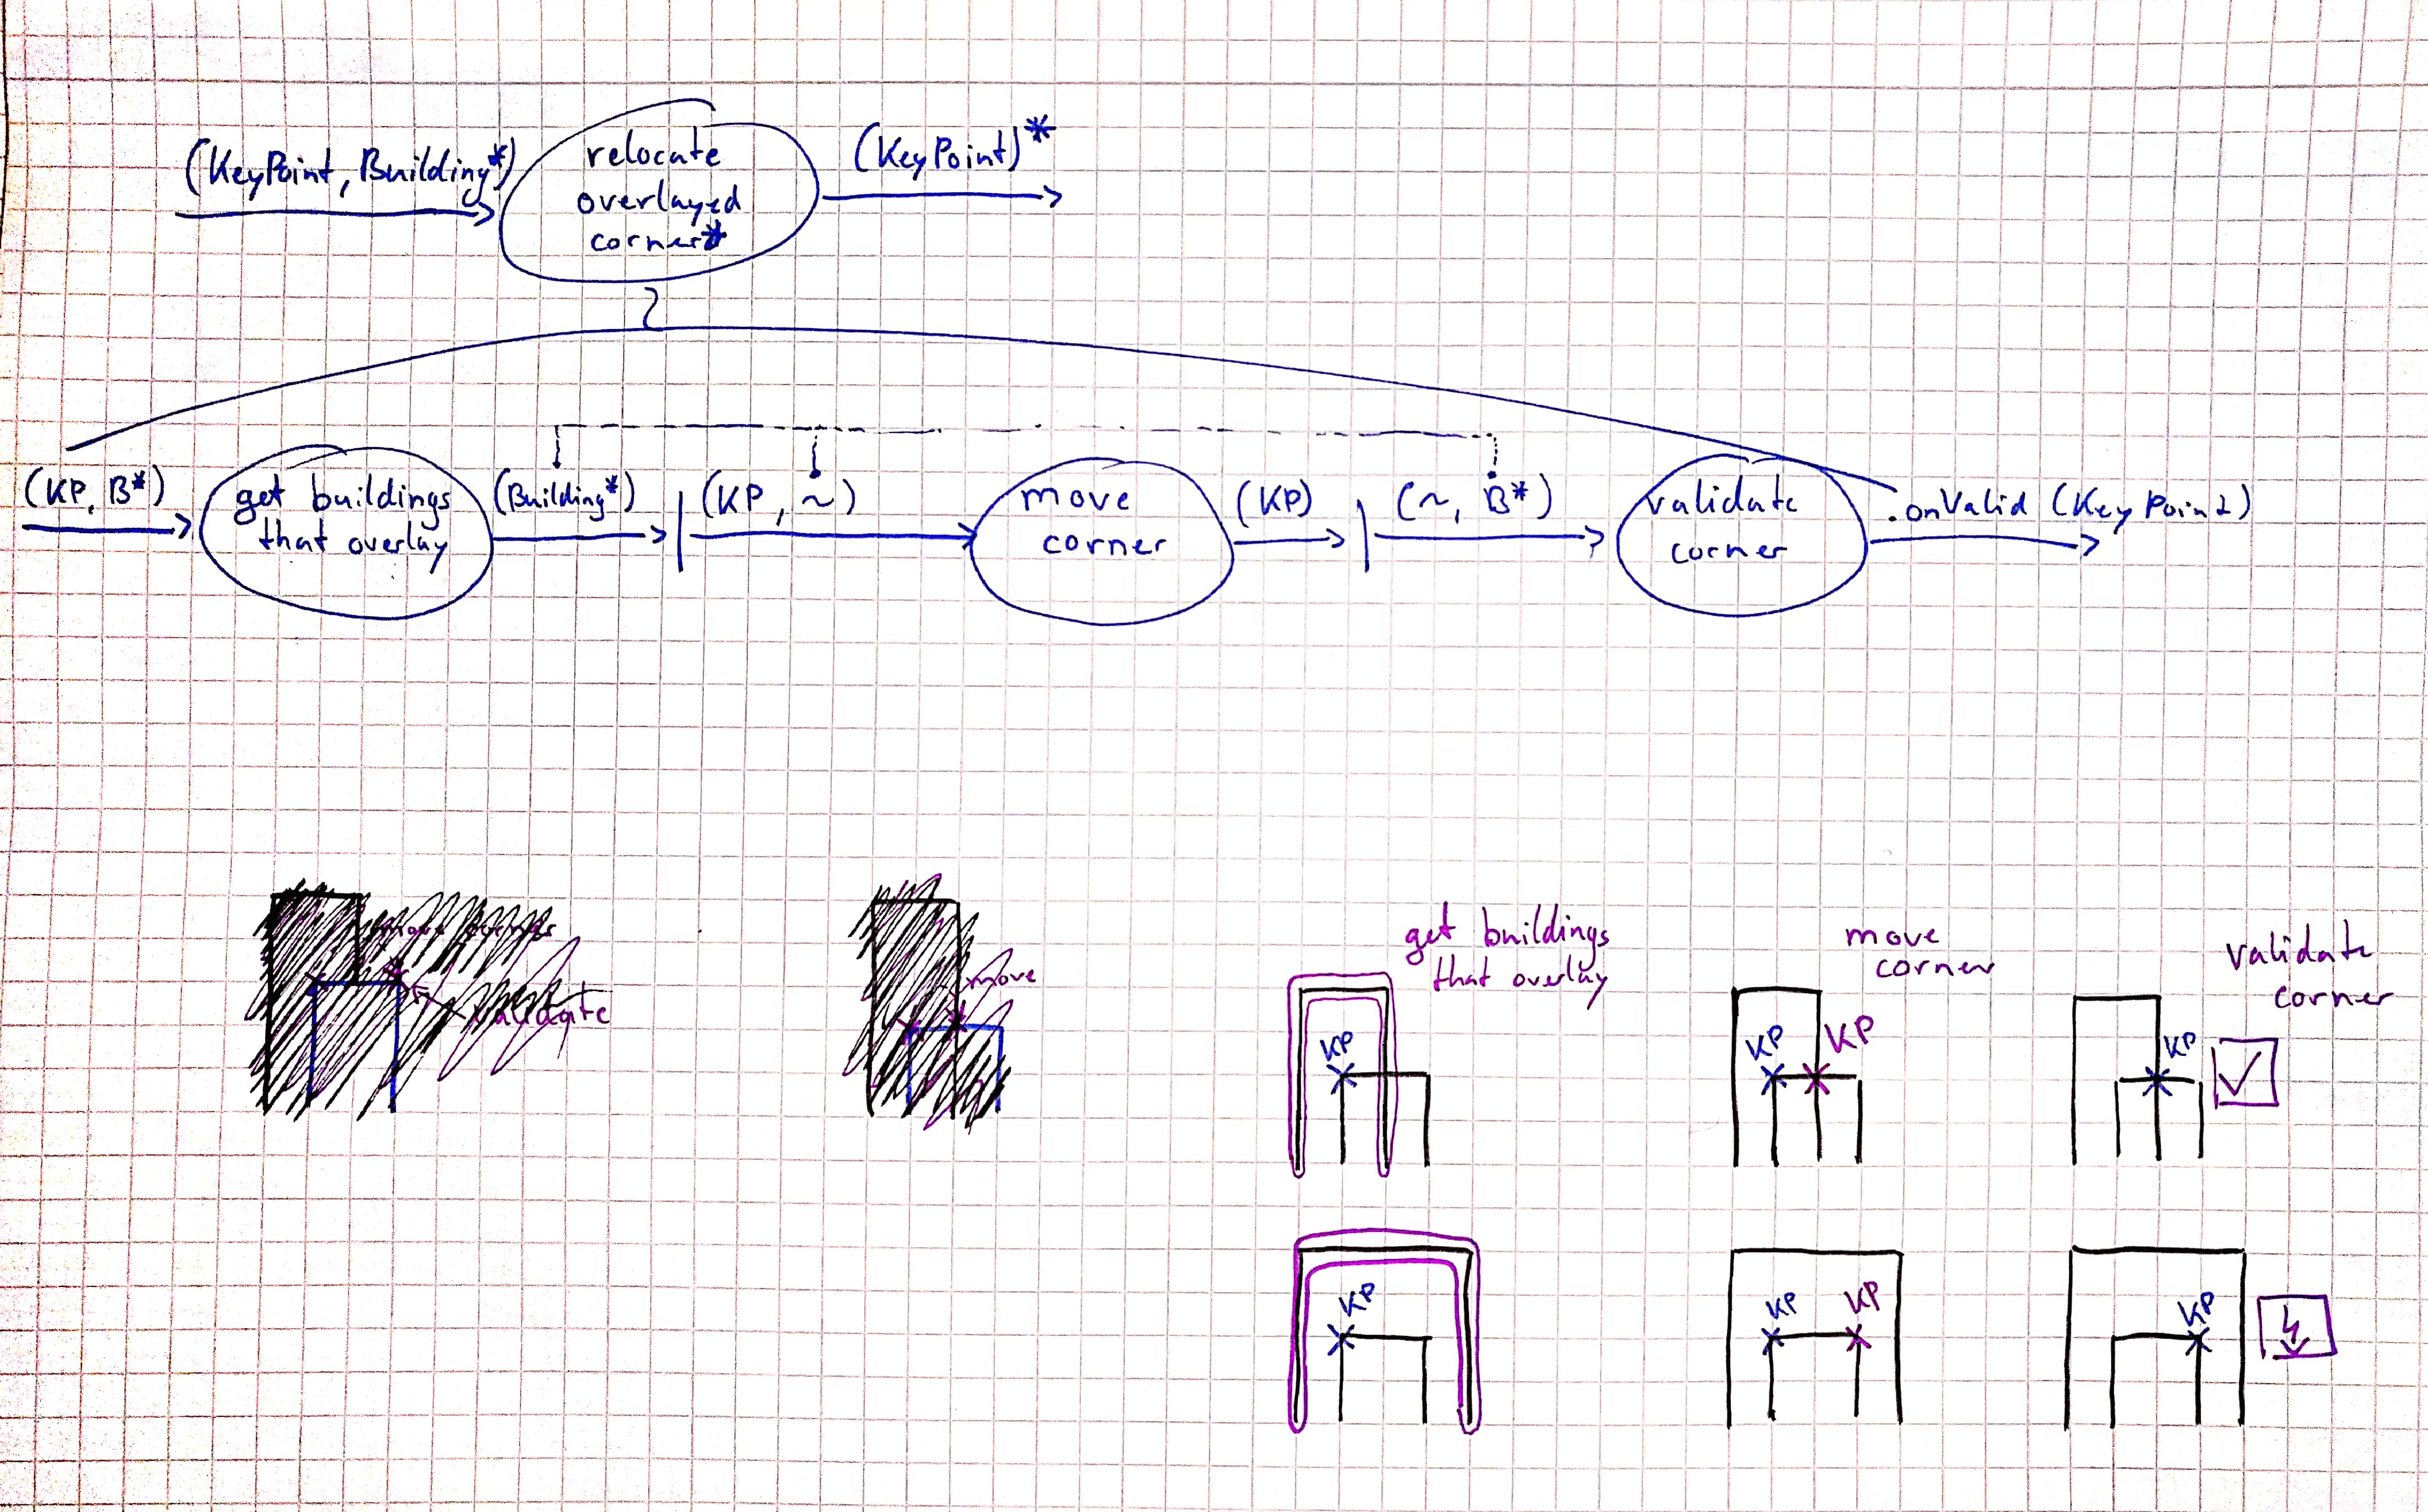 (KeyPoint, Building*)
relocate
overlayed
corner*
(KeyPoint)*
(KP, B*)
get buildings
that overlay
(Building*)
(KP, ~)
move
corner
(KP)
(~, B*)
validate
corner
.onValid (KeyPoint)
move corner
validate
move
get buildings
that overlay
move
corner
validate
corner
KP
KP
KP
KP
KP
KP
KP
KP